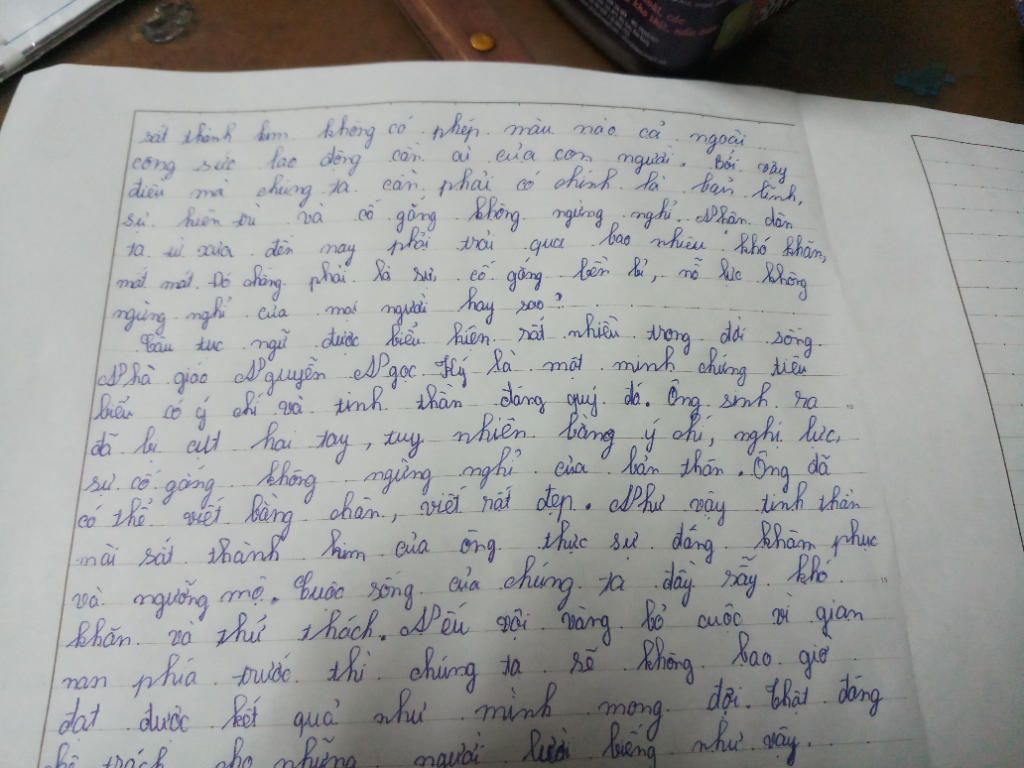 sắt thành kim không có phép màu nào cả ngoài
công sức lao động cần cù của con người. Bởi vậy
điều mà chúng ta cần phải có chính là bản lĩnh,
sự kiên trì và cố gắng không ngừng nghỉ. Nhân dân
ta từ xưa đến nay phải trải qua bao nhiêu khó khăn,
mất mát. Đó chẳng phải là sự cố gắng bền bỉ, nỗ lực không
ngừng nghỉ của mọi người hay sao?
Câu tục ngữ được biểu hiện rất nhiều trong đời sống.
Nhà giáo Nguyễn Ngọc Ký là một minh chứng tiêu
biểu có ý chí và tinh thần đáng quý đó. Ông sinh ra
đã bị cụt hai tay, tuy nhiên bằng ý chí, nghị lực,
sự cố gắng không ngừng nghỉ của bản thân. Ông đã
có thể viết bằng chân, viết rất đẹp. Như vậy tinh thần
mài sắt thành kim của ông thực sự đáng khâm phục
và ngưỡng mộ. Cuộc sống của chúng ta đầy rẫy khó
khăn và thử thách. Nếu vội vàng bỏ cuộc vì gian
nan phía trước thì chúng ta sẽ không bao giờ
đạt được kết quả như mình mong đợi. Thật đáng
chê trách cho những người lười biếng như vậy.